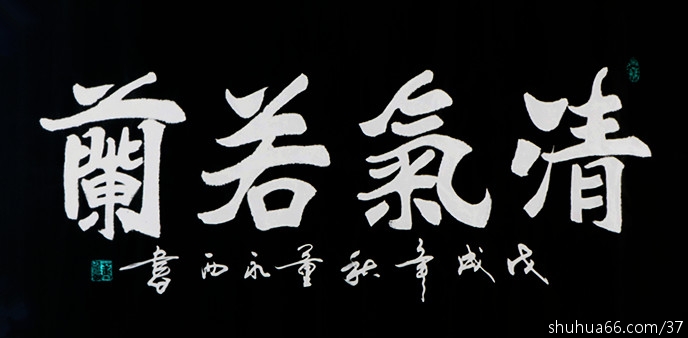 清氣若蘭
戊戌年秋董永西書
shuhua66.com/37